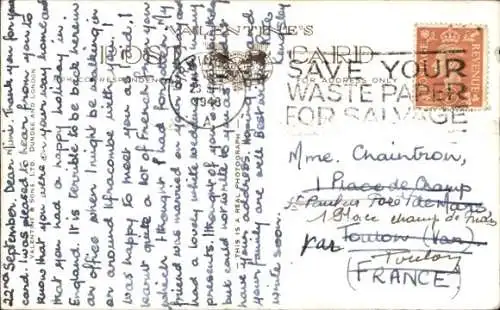 VALENTINE'S
POST CARD
FOR CORRESPONDENCE
FOR ADDRESS ONLY
SAVE YOUR
WASTE PAPER
FOR SALVAGE
POSTAGE
REVENUE
VALENTINE & SONS, LTD. DUNDEE AND LONDON
THIS IS A REAL PHOTOGRAPH
22nd September. Dear Mimi. Thank you for your
card. I was pleased to hear from you to
know that you were on your way home and
that you had a happy holiday in
England. It is terrible to be back here in
an office when I might be walking in
or around Ilfracombe with you!
I was happy to meet you and I
learnt quite a lot of French from you
which I thought I had forgotten. My
friend was married on
had a lovely white wedding
presents. I thought of you
but could not write to you as I did not
have your address. Hoping you and
your family are well. Best wishes
write soon.
Mme. Chaintron,
1 Place de Camp
1 Place champ de
par Toulon (Var)
Toulon
(FRANCE)